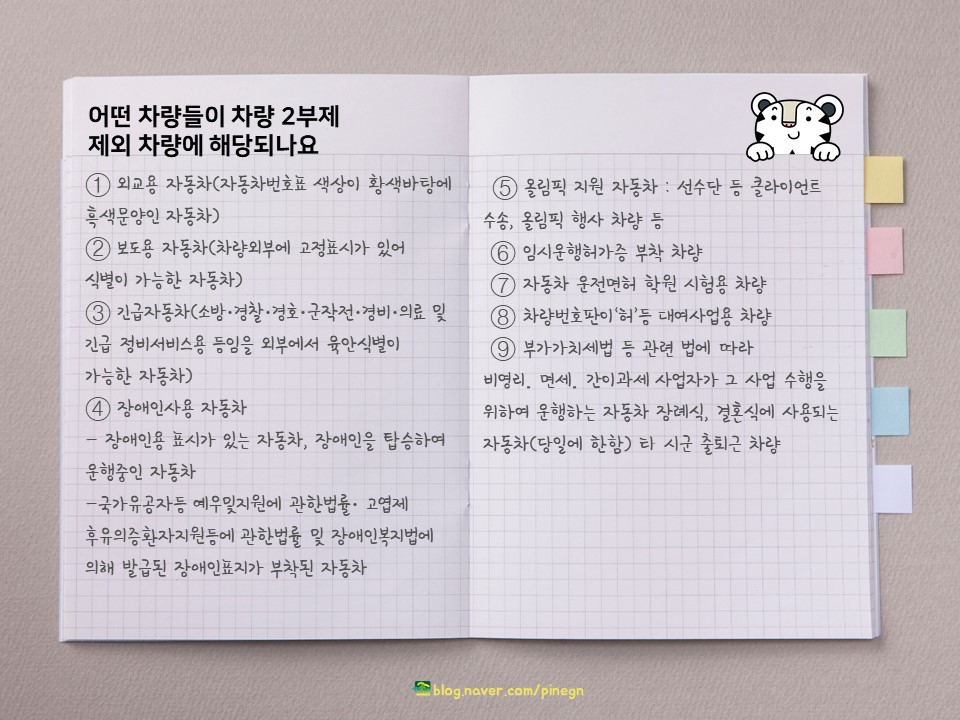 어떤 차량들이 차량 2부제
제외 차량에 해당되나요
① 외교용 자동차(자동차번호표 색상이 황색바탕에
흑색문양인 자동차)
② 보도용 자동차(차량외부에 고정표시가 있어
식별이 가능한 자동차)
③ 긴급자동차(소방·경찰·경호·군작전·경비·의료 및
긴급 정비서비스용 등임을 외부에서 육안식별이
가능한 자동차)
④ 장애인사용 자동차
- 장애인용 표시가 있는 자동차, 장애인을 탑승하여
운행중인 자동차
-국가유공자등 예우및지원에 관한법률· 고엽제
후유의증환자지원등에 관한법률 및 장애인복지법에
의해 발급된 장애인표지가 부착된 자동차
⑤ 올림픽 지원 자동차 : 선수단 등 클라이언트
수송, 올림픽 행사 차량 등
⑥ 임시운행허가증 부착 차량
⑦ 자동차 운전면허 학원 시험용 차량
⑧ 차량번호판이'허'등 대여사업용 차량
⑨ 부가가치세법 등 관련 법에 따라
비영리. 면세. 간이과세 사업자가 그 사업 수행을
위하여 운행하는 자동차 장례식, 결혼식에 사용되는
자동차(당일에 한함) 타 시군 출퇴근 차량
blog.naver.com/pinegn